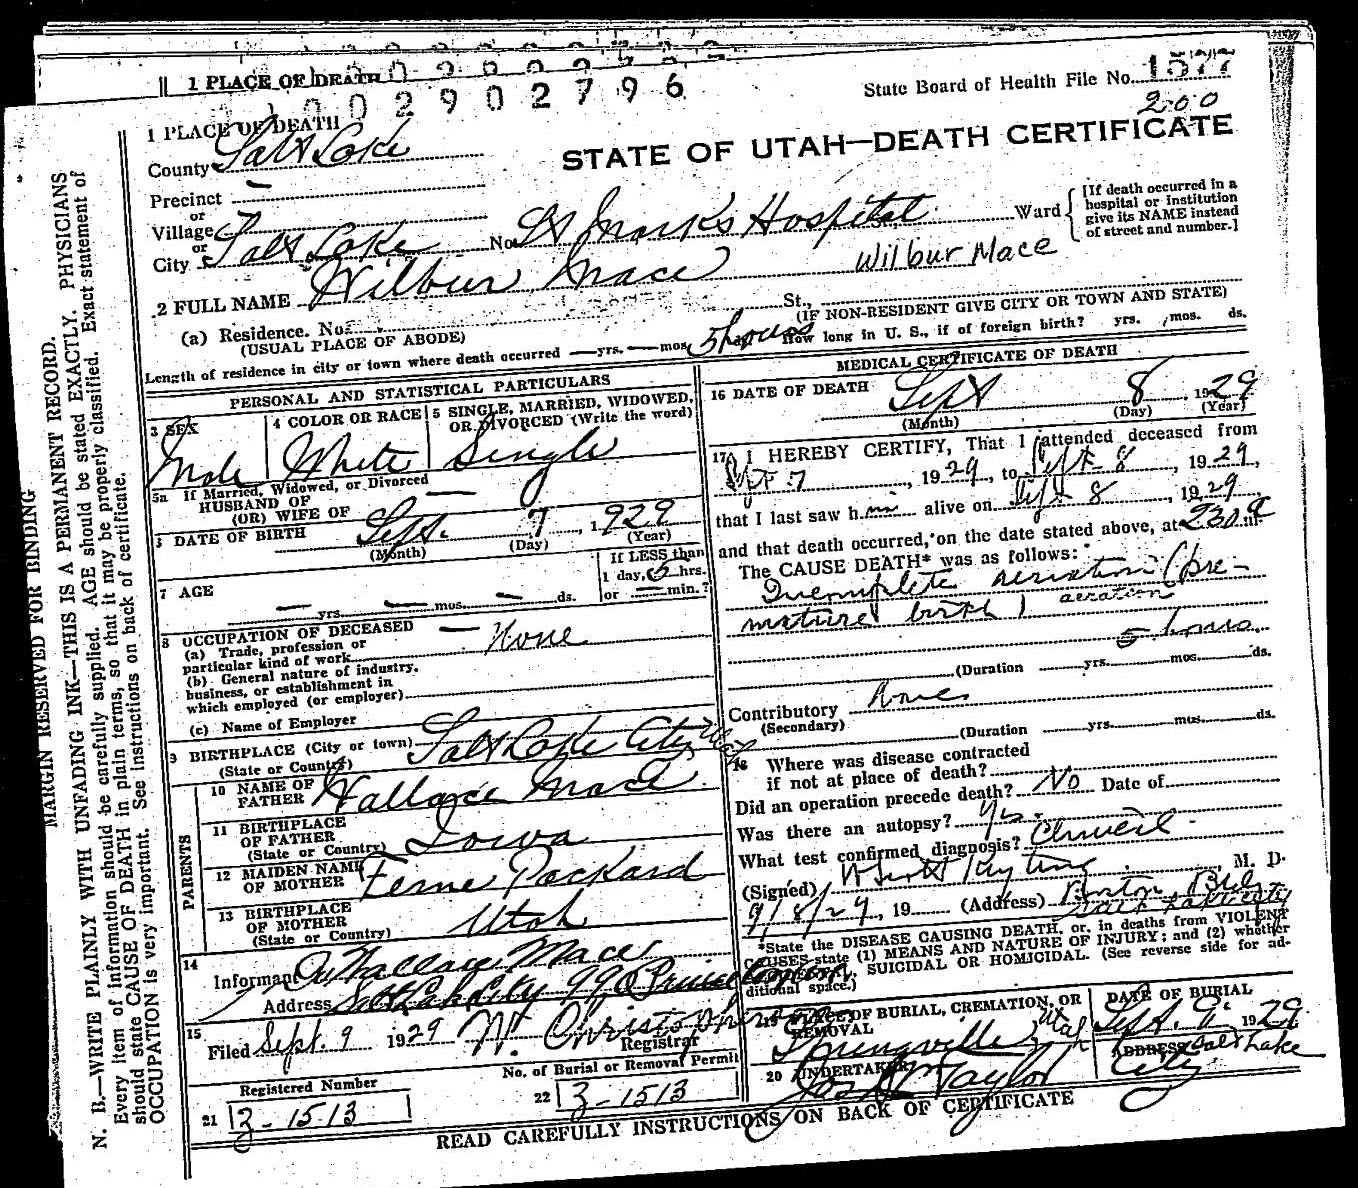 1 PLACE OF DEATH
002902796
State Board of Health File No. 1577
200
1 PLACE OF DEATH
STATE OF UTAH—DEATH CERTIFICATE
County Salt Lake
Precinct —
or
Village
or
City Salt Lake No. St Marks Hospital St., Ward
[If death occurred in a hospital or institution give its NAME instead of street and number.]
2 FULL NAME Wilbur Mace
Wilbur Mace
(a) Residence. No. St.,
(USUAL PLACE OF ABODE)
(IF NON-RESIDENT GIVE CITY OR TOWN AND STATE)
Length of residence in city or town where death occurred — yrs. — mos. 5 hours How long in U. S., if of foreign birth? yrs. mos. ds.
PERSONAL AND STATISTICAL PARTICULARS
3 SEX
Male
4 COLOR OR RACE
White
5 SINGLE, MARRIED, WIDOWED, OR DIVORCED (Write the word)
Single
5a If Married, Widowed, or Divorced
HUSBAND OF
(OR) WIFE OF —
DATE OF BIRTH Sept. 7, 1929
(Month) (Day) (Year)
7 AGE
— yrs. — mos. — ds.
If LESS than
1 day, 5 hrs.
or — min.?
8 OCCUPATION OF DECEASED —
(a) Trade, profession or
particular kind of work None
(b) General nature of industry,
business, or establishment in
which employed (or employer)
(c) Name of Employer
9 BIRTHPLACE (City or town) Salt Lake City Utah
(State or Country)
PARENTS
10 NAME OF FATHER Wallace Mace
11 BIRTHPLACE OF FATHER Iowa
(State or Country)
12 MAIDEN NAME OF MOTHER Ferne Packard
13 BIRTHPLACE OF MOTHER Utah
(State or Country)
14
Informant A. Wallace Mace
Address Salt Lake City 990 Princeton
15
Filed Sept. 9 1929 W. Christopherson
Registrar
Registered Number
21 3-1513
No. of Burial or Removal Permit
22 3-1513
MEDICAL CERTIFICATE OF DEATH
16 DATE OF DEATH Sept 8, 1929
(Month) (Day) (Year)
17 I HEREBY CERTIFY, That I attended deceased from
Sept 7, 1929, to Sept 8, 1929,
that I last saw him alive on Sept 8, 1929
and that death occurred, on the date stated above, at 230 a m.
The CAUSE DEATH* was as follows:
Incomplete aeriation (pre-
mature birth) aeration
5 hours.
(Duration yrs. mos. ds.
Contributory None
(Secondary)
(Duration yrs. mos. ds.
18 Where was disease contracted
if not at place of death?
Did an operation precede death? No Date of
Was there an autopsy? Yes.
What test confirmed diagnosis? Clinical.
(Signed) M. D.
9/8/29, 19 (Address) Boston Bldg
Salt Lake City
*State the DISEASE CAUSING DEATH, or, in deaths from VIOLENT
CAUSES state (1) MEANS AND NATURE OF INJURY; and (2) whether
SUICIDAL OR HOMICIDAL. (See reverse side for ad-
ditional space.)
19 PLACE OF BURIAL, CREMATION, OR REMOVAL
Springville Utah
DATE OF BURIAL
Sept. 9. 1929
20 UNDERTAKER
Jos Wm Taylor
ADDRESS Salt Lake
City
READ CAREFULLY INSTRUCTIONS ON BACK OF CERTIFICATE
MARGIN RESERVED FOR BINDING
N. B.—WRITE PLAINLY WITH UNFADING INK—THIS IS A PERMANENT RECORD.
Every item of information should be carefully supplied. AGE should be stated EXACTLY. PHYSICIANS
should state CAUSE OF DEATH in plain terms, so that it may be properly classified. Exact statement of
OCCUPATION is very important. See instructions on back of certificate.